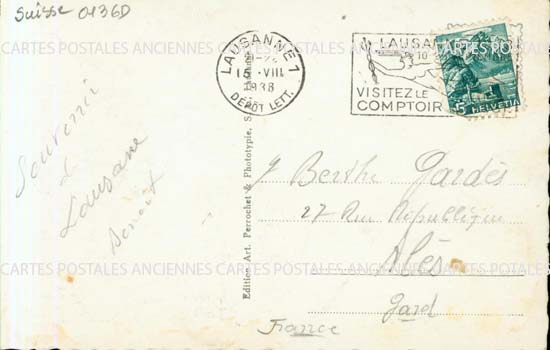 Suisse 0136D
CARTES POSTALES ANCIENNES CARTES POSTALES ANCIENNES CARTES POSTALES ANCIENNES
LAUSANNE 1
15. VIII
1938
DÉPÔT LETT.
LAUSA
10
VISITEZ LE
COMPTOIR
5 HELVETIA
Souvenir
de
Lausane
Benoit
Edition Art. Perrochet & Phototypie, S. A., Lausanne
Berthe Gardès
27 Rue République
Alès
CARTES POSTALES ANCIENNES CARTES POSTALES ANCIENNES CARTES POSTALES ANCIENNES
Gard
France